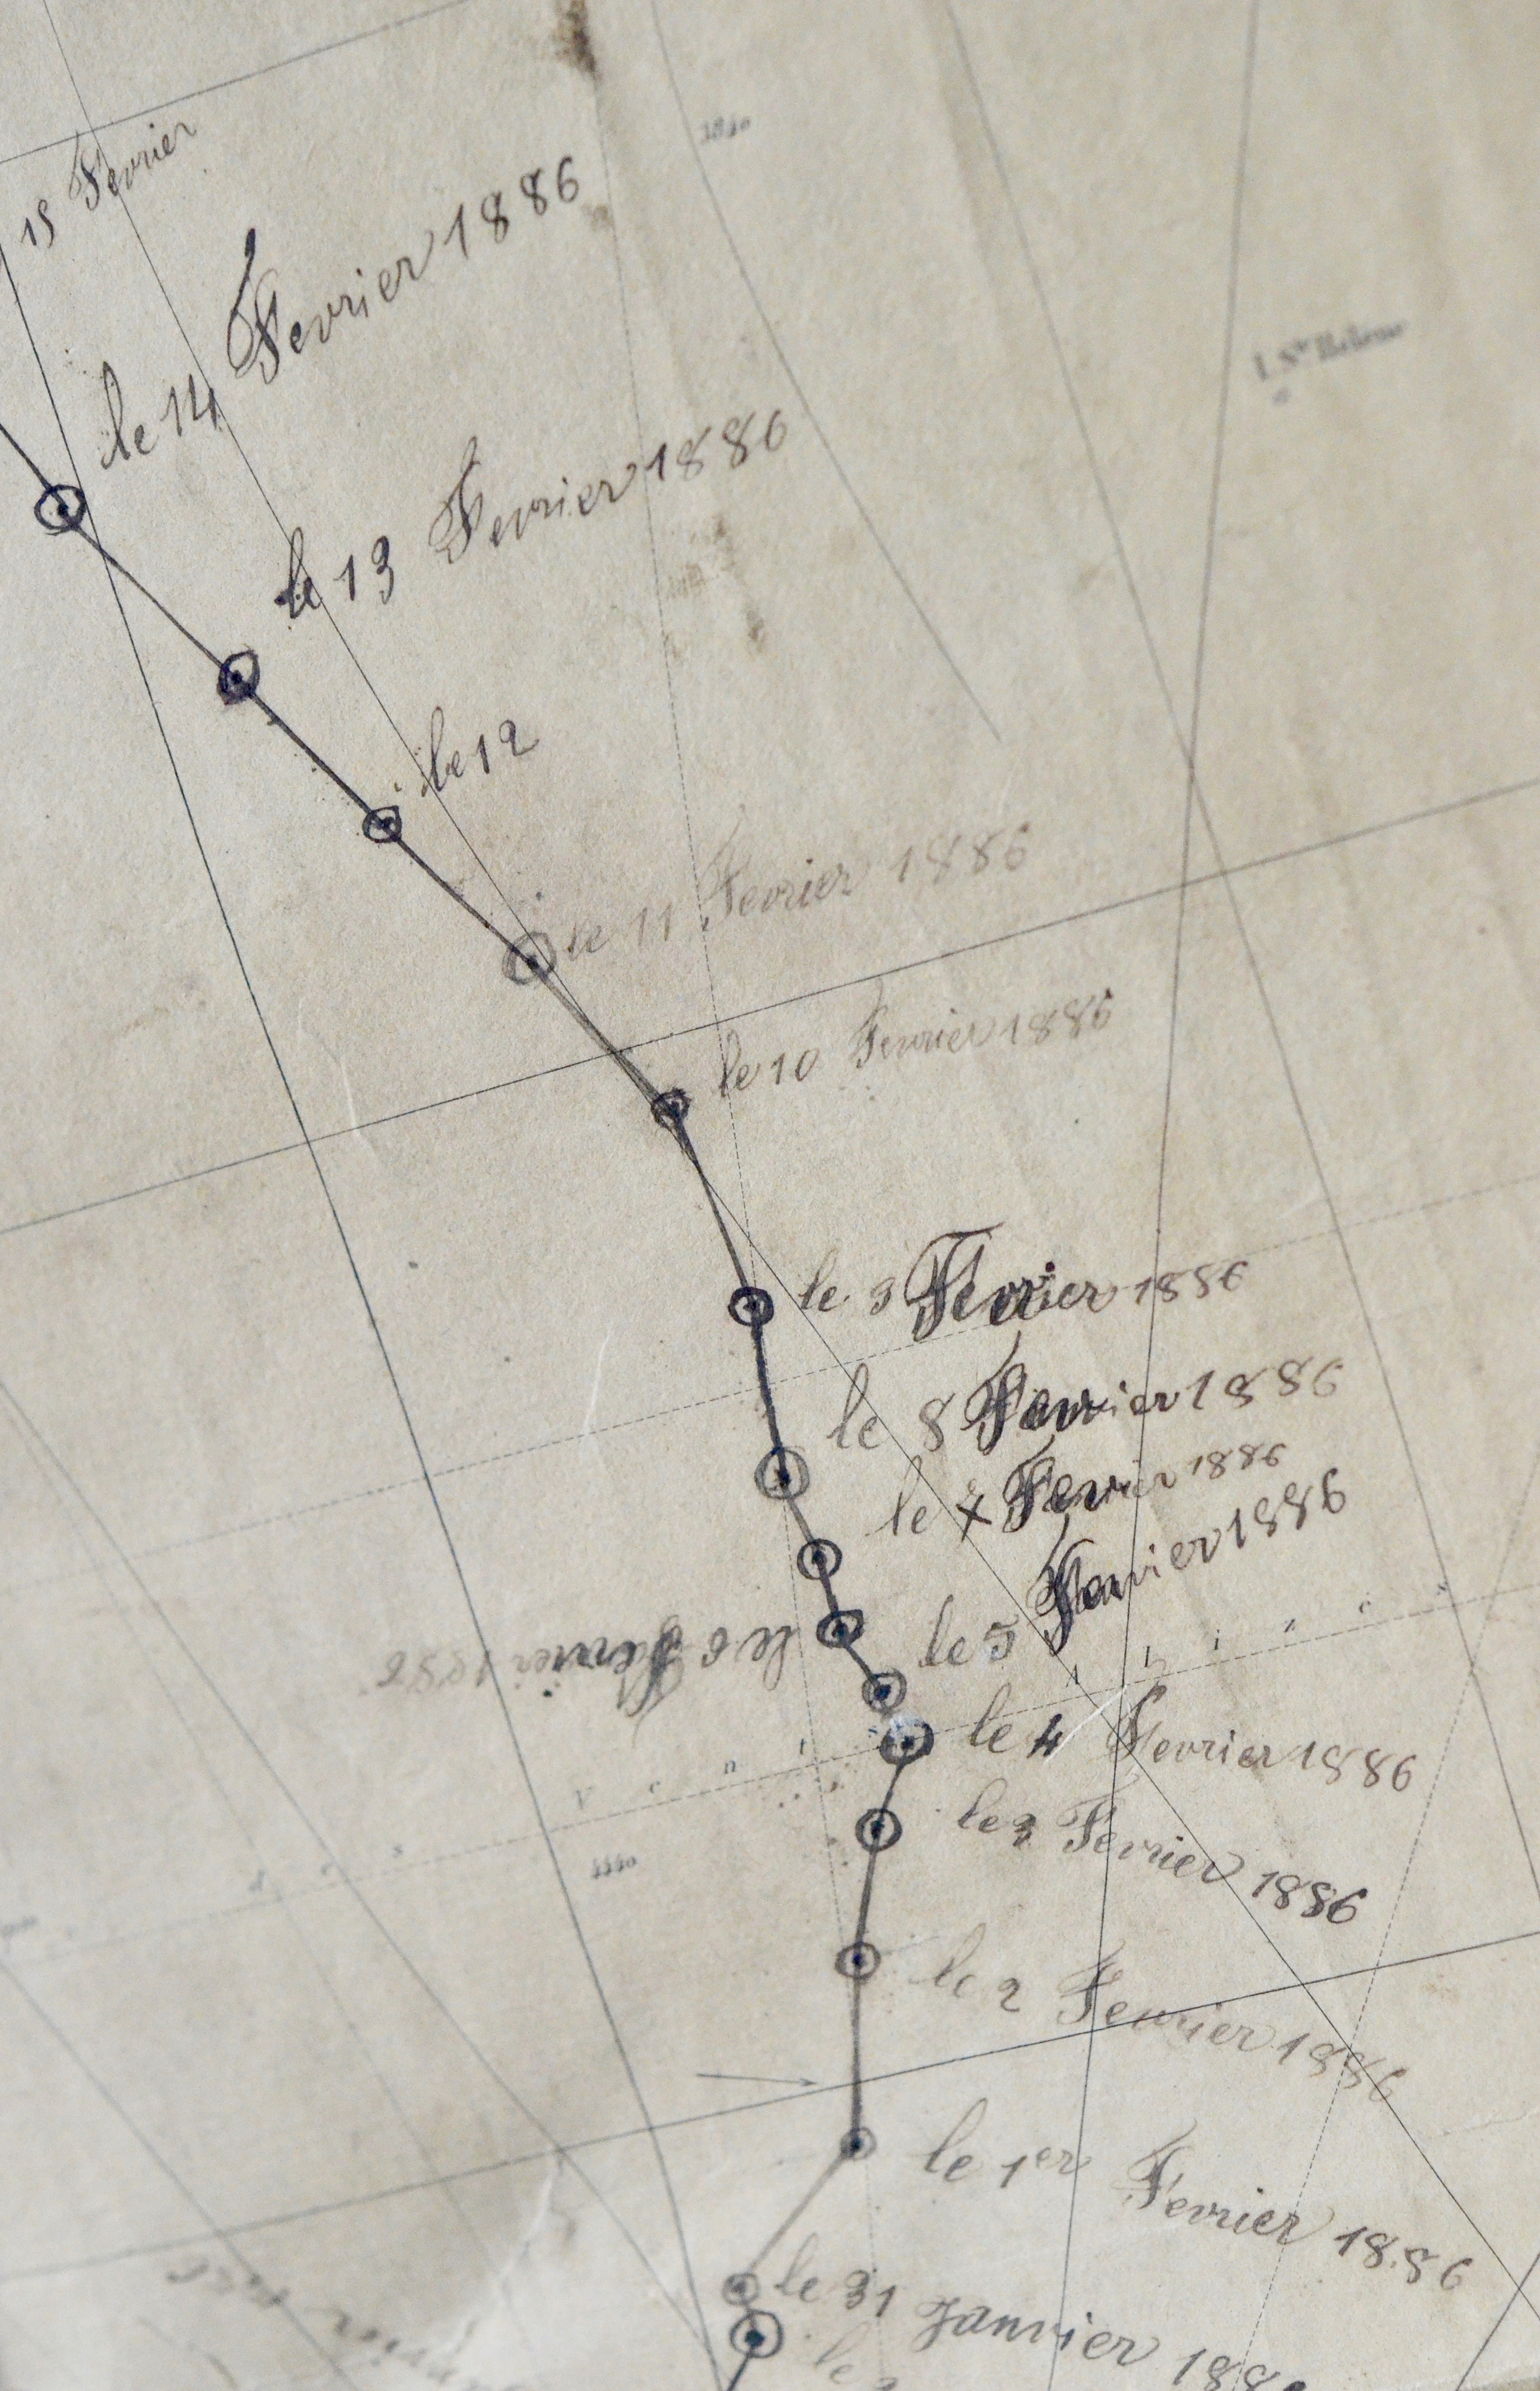 15 Fevrier
le 14 Fevrier 1886
I. Ste Hélène
le 13 Fevrier 1886
le 12
le 11 Fevrier 1886
le 10 Fevrier 1886
le 9 Fevrier 1886
le 8 Fevrier 1886
le 7 Fevrier 1886
le 6 Fevrier 1886
le 5 Fevrier 1886
le 4 Fevrier 1886
le 3 Fevrier 1886
le 2 Fevrier 1886
le 1er Fevrier 1886
le 31 Janvier 188
le